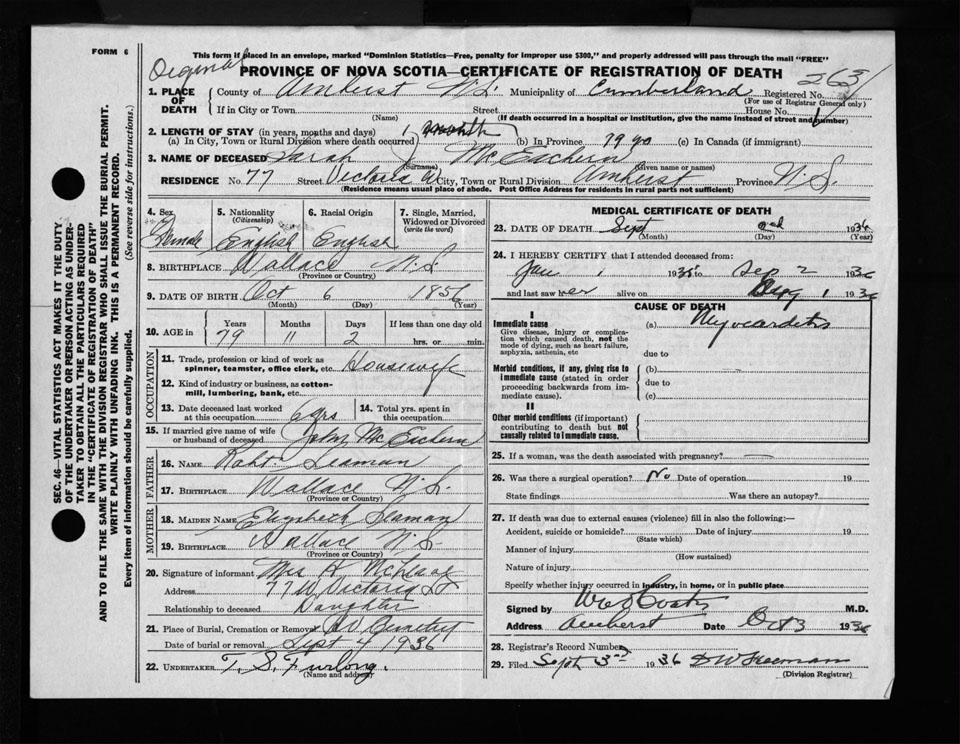 FORM 6
This form if placed in an envelope, marked "Dominion Statistics—Free, penalty for improper use $300," and properly addressed will pass through the mail "FREE"
Original
PROVINCE OF NOVA SCOTIA—CERTIFICATE OF REGISTRATION OF DEATH
263
1. PLACE OF DEATH County of Amherst N.S. Municipality of Cumberland Registered No.
(For use of Registrar General only)
If in City or Town Street House No.
(Name) (If death occurred in a hospital or institution, give the name instead of street and number)
2. LENGTH OF STAY (in years, months and days)
(a) In City, Town or Rural Division where death occurred) 1 month (b) In Province 79 yrs (c) In Canada (if immigrant)
3. NAME OF DECEASED Sarah McEachern
(Surname) (Given name or names)
RESIDENCE No. 77 Street Victoria W City, Town or Rural Division Amherst Province N.S.
(Residence means usual place of abode. Post Office Address for residents in rural parts not sufficient)
SEC. 46—VITAL STATISTICS ACT MAKES IT THE DUTY
OF THE UNDERTAKER OR PERSON ACTING AS UNDER-
TAKER TO OBTAIN ALL THE PARTICULARS REQUIRED
IN THE "CERTIFICATE OF REGISTRATION OF DEATH"
AND TO FILE THE SAME WITH THE DIVISION REGISTRAR WHO SHALL ISSUE THE BURIAL PERMIT.
WRITE PLAINLY WITH UNFADING INK. THIS IS A PERMANENT RECORD.
Every item of information should be carefully supplied. (See reverse side for instructions.)
4. Sex 5. Nationality (Citizenship) 6. Racial Origin 7. Single, Married, Widowed or Divorced (write the word)
Female English English
8. BIRTHPLACE Wallace N.S.
(Province or Country)
9. DATE OF BIRTH Oct 6 1856
(Month) (Day) (Year)
10. AGE in Years Months Days If less than one day old
79 11 2 hrs. or min.
OCCUPATION
11. Trade, profession or kind of work as spinner, teamster, office clerk, etc. Housewife
12. Kind of industry or business, as cotton-mill, lumbering, bank, etc.
13. Date deceased last worked at this occupation 6 yrs 14. Total yrs. spent in this occupation
15. If married give name of wife or husband of deceased John McEachern
FATHER
16. Name Robt. Seaman
17. Birthplace Wallace N.S.
(Province or Country)
MOTHER
18. Maiden Name Elizabeth Seaman
19. Birthplace Wallace N.S.
(Province or Country)
20. Signature of informant Mrs H
Address 77 W Victoria St
Relationship to deceased Daughter
21. Place of Burial, Cremation or Removal Cemetery
Date of burial or removal Sept 4 1936
22. UNDERTAKER T. S. Furlong.
(Name and address)
MEDICAL CERTIFICATE OF DEATH
23. DATE OF DEATH Sept 2nd 1936
(Month) (Day) (Year)
24. I HEREBY CERTIFY that I attended deceased from:
Jan 1 1935 to Sep 2 1936
and last saw her alive on Sep 1 1936
CAUSE OF DEATH
I
Immediate cause (a) Myocarditis
Give disease, injury or complica-
tion which caused death, not the
mode of dying, such as heart failure,
asphyxia, asthenia, etc due to
Morbid conditions, if any, giving rise to (b)
immediate cause (stated in order due to
proceeding backwards from im-
mediate cause). (c)
II
Other morbid conditions (if important)
contributing to death but not
causally related to immediate cause.
25. If a woman, was the death associated with pregnancy? —
26. Was there a surgical operation? No Date of operation 19
State findings Was there an autopsy?
27. If death was due to external causes (violence) fill in also the following:—
Accident, suicide or homicide? Date of injury 19
(State which)
Manner of injury
(How sustained)
Nature of injury
Specify whether injury occurred in industry, in home, or in public place
Signed by M.D.
Address Amherst Date Oct 3 1936
28. Registrar's Record Number
29. Filed Sept 3rd 1936 D W Freeman
(Division Registrar)